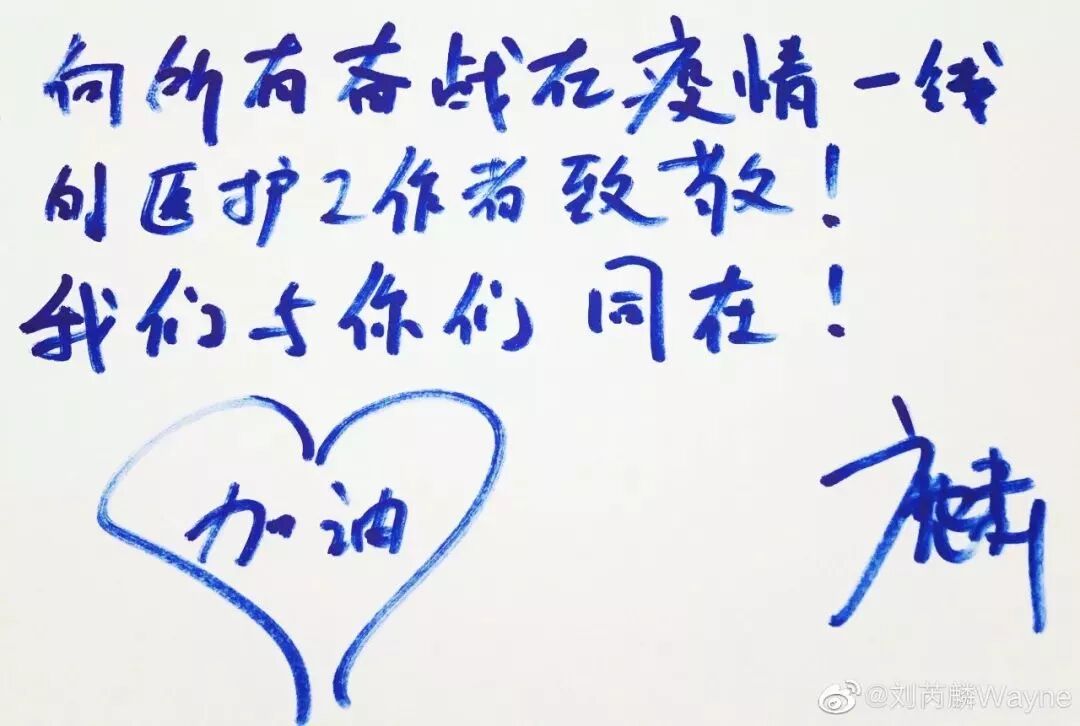 向所有奋战在疫情一线
的医护工作者致敬！
我们与你们同在！
加油
麟
@刘芮麟Wayne